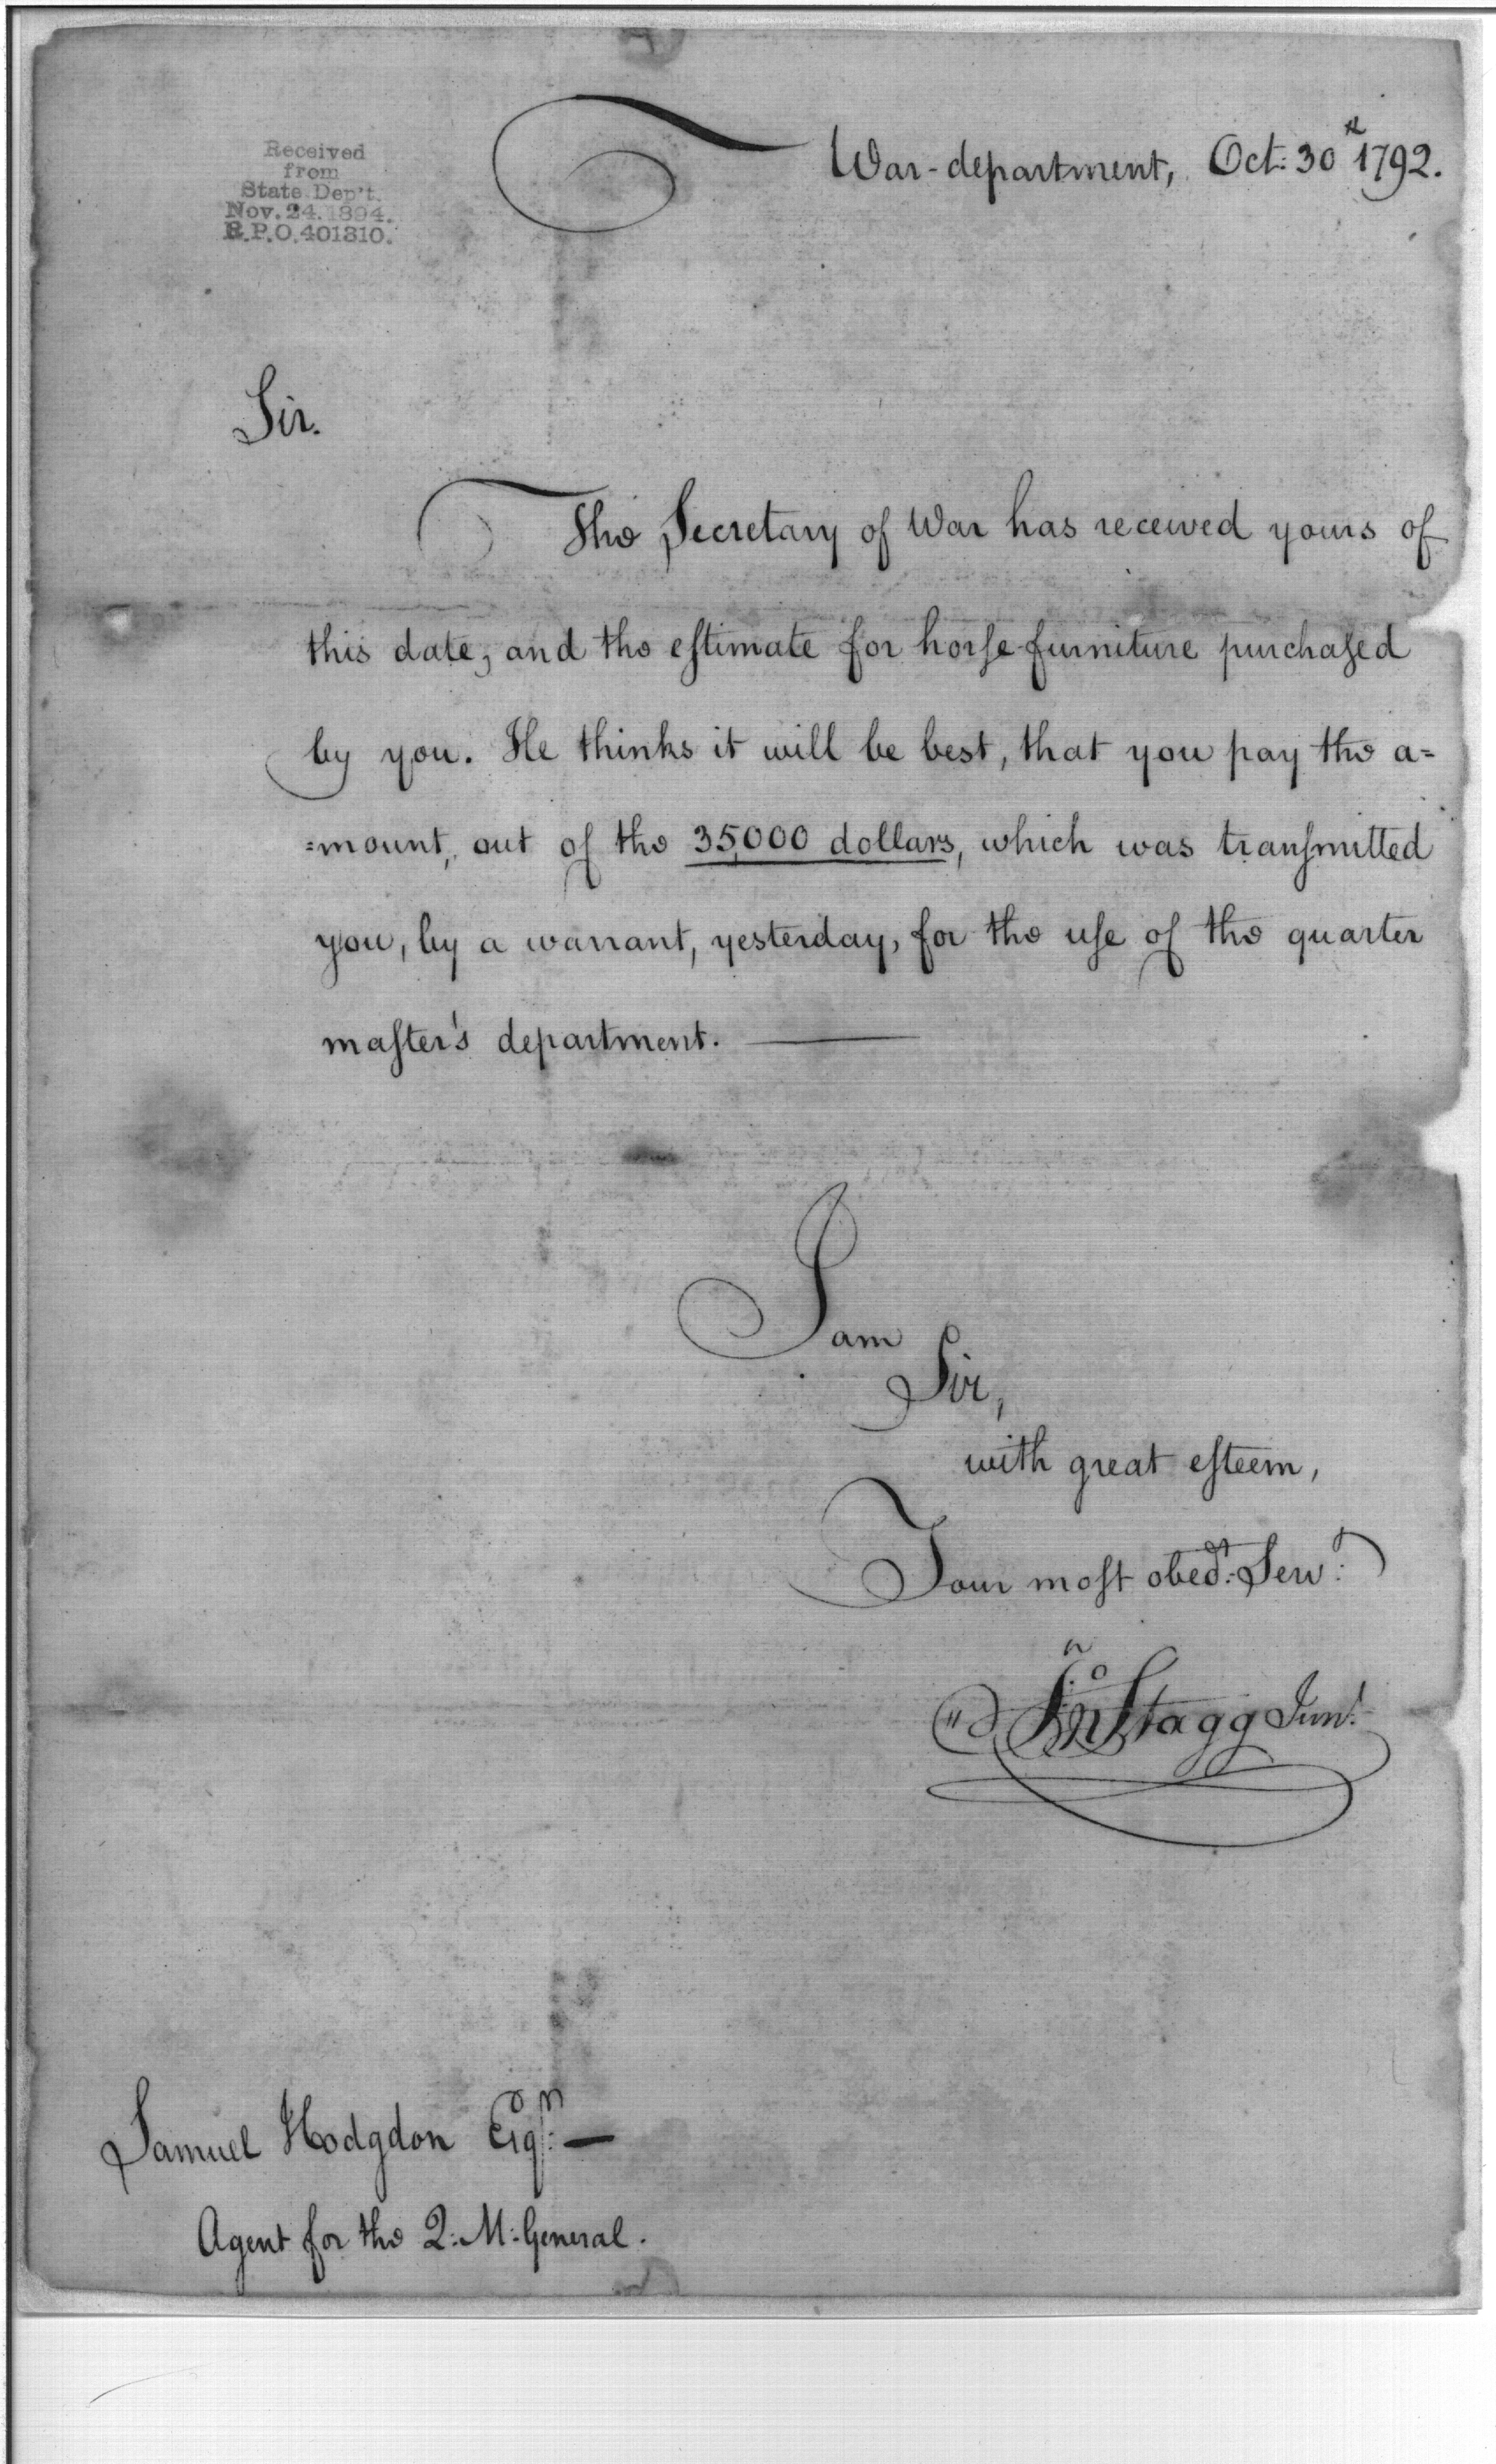 Received
from
State Dep't.
Nov. 24. 1894.
R.P.O. 401810.
War-department, Oct: 30th 1792.
Sir.
The Secretary of War has received yours of
this date, and the eſtimate for horſe-furniture purchaſed
by you. He thinks it will be best, that you pay the a=
=mount, out of the 35,000 dollars, which was tranſmitted
you, by a warrant, yesterday, for the uſe of the quarter
maſter's department.
I am
Sir,
with great eſteem,
Your moſt obedt. Servt.
Jno Stagg Junr.
Samuel Hodgdon Esqr. —
Agent for the Q: M: General.